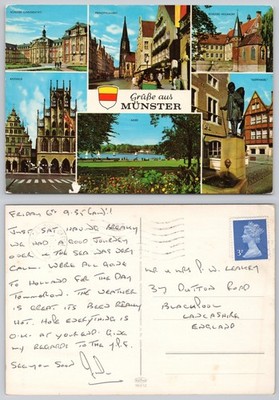 Grüße aus
MÜNSTER
Friday 6th 9.35 (am)!
Just sat having breaky
We had a good journey
over & the sea was very
calm. Were all going
to Holland for the day
tomorrow. The weather
is great its been really
hot. Hope everything is
O.K. at your end. Give
my regards to the
See you soon
Mr & Mrs P. W.
37 Dutton Road
Blackpool
Lancashire
England